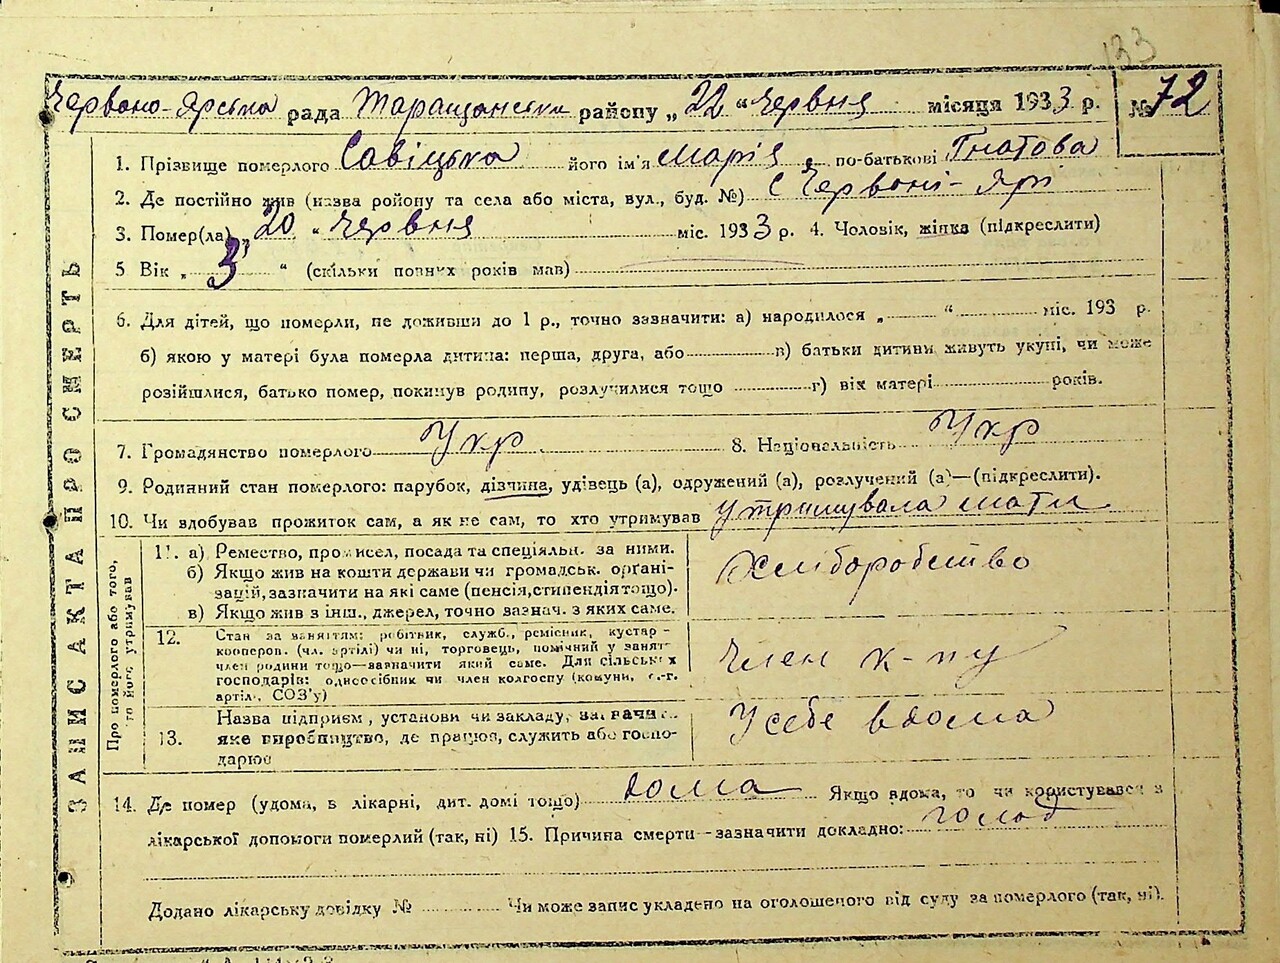 133
Червоно-Ярська рада Таращанськ району „22 “ Червня місяця 1933 р. № 72
ЗАПИС АКТА ПРО СМЕРТЬ
1. Прізвище померлого Савіцька його ім'я Марія по-батькові Гнатова
2. Де постійно жив (назва ройону та села або міста, вул., буд. №) С Червоні-Яри
3. Помер(ла) „ 20 “ Червня міс. 1933 р. 4. Чоловік, жінка (підкреслити)
5 Вік „ 3 “ (скільки повних років мав)
6. Для дітей, що померли, не доживши до 1 р., точно зазначити: а) народилося „ “ міс. 193 р.
б) якою у матері була померла дитина: перша, друга, або в) батьки дитини живуть укупі, чи може
розійшлися, батько помер, покинув родину, розлучилися тощо г) вік матері років.
7. Громадянство померлого Укр 8. Національність Укр
9. Родинний стан померлого: парубок, дівчина, удівець (а), одружений (а), розлучений (а)—(підкреслити).
10. Чи здобував прожиток сам, а як не сам, то хто утримував утримувала мати
Про померлого або того,
то його утримував
11. а) Ремество, промисел, посада та спеціяльн. за ними.
б) Якщо жив на кошти держави чи громадськ. органі-
зацій, зазначити на які саме (пенсія, стипендія тощо).
в) Якщо жив з інш., джерел, точно зазнач. з яких саме.
Хліборобство
12. Стан за заняттям: робітник, служб., ремісник, кустар -
кооперов. (чл. артілі) чи ні, торговець, помічний у занят.
член родини тощо—зазначити який саме. Для сільських
господарів: одноосібник чи член колгоспу (комуни, с.-г.
артіл., СОЗ'у)
Член к-пу
13. Назва підприєм, установи чи закладу, зазначи
яке виробництво, де працює, служить або госпо-
дарює
У себе вдома
14. Де помер (удома, в лікарні, дит. домі тощо) дома Якщо вдома, то чи користувався з
лікарської допомоги померлий (так, ні) 15. Причина смерти—зазначити докладно: голод
Додано лікарську довідку № Чи може запис укладено на оголошеного від суду за померлого (так, ні).